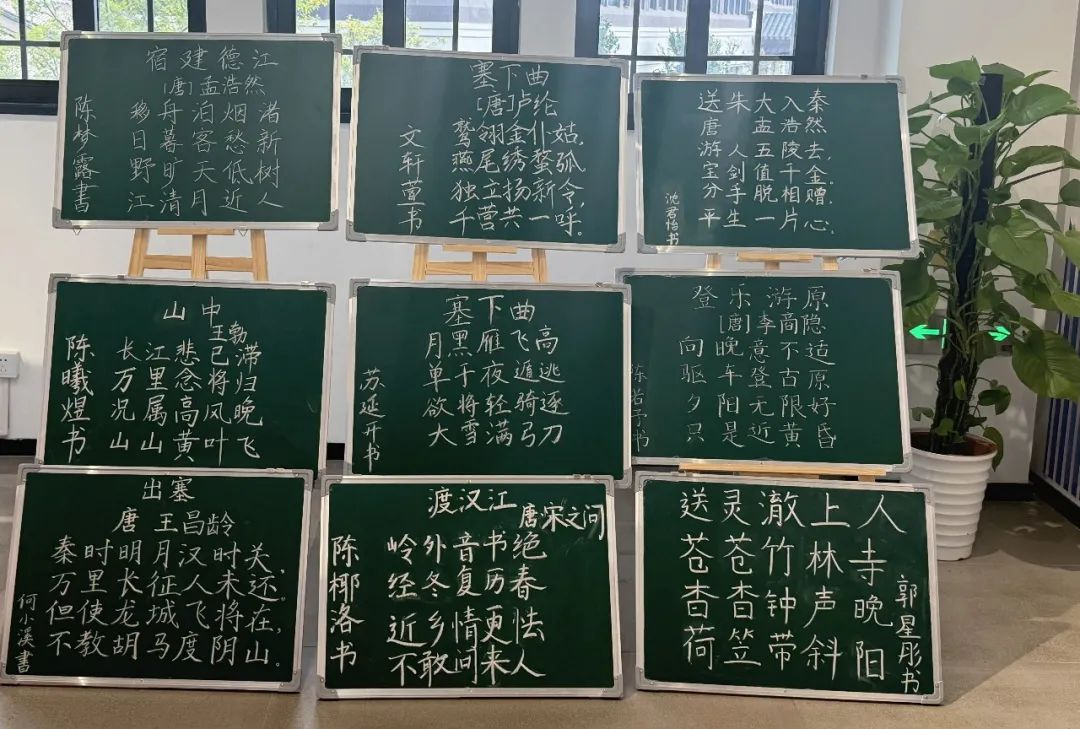 宿建德江
[唐]孟浩然
移舟泊烟渚
日暮客愁新
野旷天低树
江清月近人
陈梦露書
塞下曲
[唐]卢纶
鹫翎金仆姑,
燕尾绣蝥弧
独立扬新令,
千营共一呼。
文轩萱书
送朱大入秦
唐 孟浩然
游人五陵去,
宝剑值千金.
分手脱相赠,
平生一片心.
沈君怡书
山中
王勃
长江悲已滞
万里念将归
况属高风晚
山山黄叶飞
陈曦煜书
塞下曲
月黑雁飞高
单于夜遁逃
欲将轻骑逐
大雪满弓刀
苏延开书
登乐游原
[唐]李商隐
向晚意不适
驱车登古原
夕阳无限好
只是近黄昏
陈若予书
出塞
唐 王昌龄
秦时明月汉时关,
万里长征人未还.
但使龙城飞将在,
不教胡马度阴山。
何小溪書
渡汉江
唐宋之问
岭外音书绝
经冬复历春
近乡情更怯
不敢问来人
陈椰洛书
送灵澈上人
苍苍竹林寺
杳杳钟声晚
荷笠带斜阳
郭星彤书